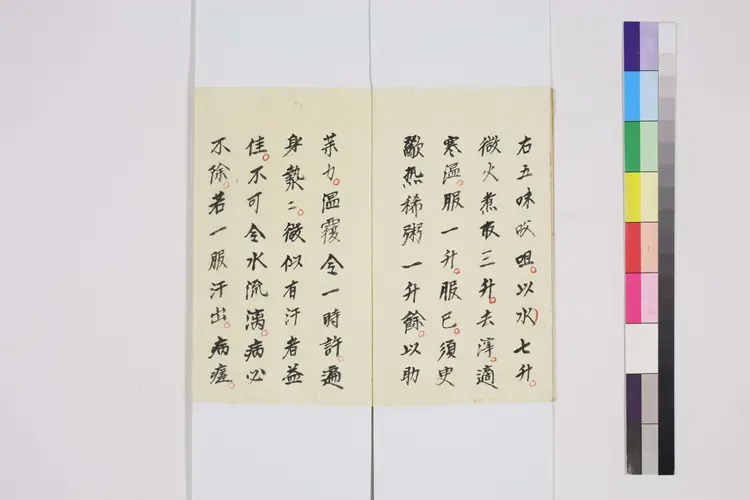 右五味㕮咀。以水七升。
微火煮取三升。去滓。適
寒溫。服一升。服已。須臾
歠热稀粥一升餘。以助
藥力。溫覆令一時許。遍
身漐〻。微似有汗者益
佳。不可令水流漓。病必
不除。若一服汗出。病瘥。